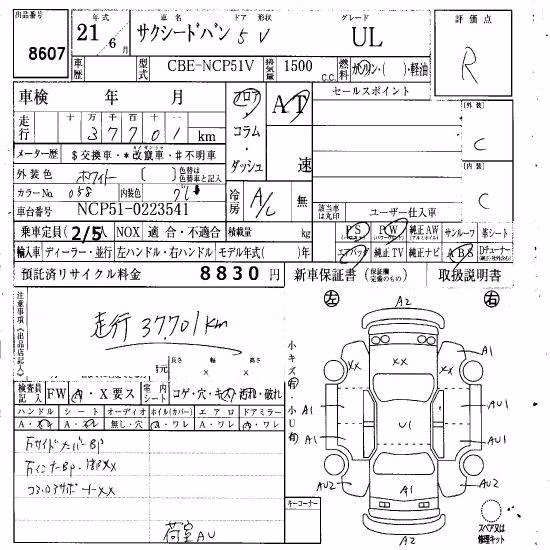 出品番号 8607
年式 21 6月
車名 ドア 形状 サクシードバン 5 V
グレード UL
評価点 R
車歴
型式 CBE-NCP51V
排気量 1500 C.C.
燃料 ガソリン・( )・軽油
車検 年 月
フロア・コラム・ダッシュ
AT 速
セールスポイント
[外装] C
走行 十万 万 千 百 十 一
37701 km
メーター歴 $交換車・*改竄車・#不明車
外装色 ホワイト 〔 〕 色替は色替車と記入
[内装] C
カラーNo. 058 内装色 グレー
冷房 A/C 無
車台番号 NCP51-0223541
該当車は丸印 ユーザー仕入車
乗車定員 (2/5) NOX 適合・不適合 積載量 kg
PS PW 純正AW サンルーフ 革シート
輸入車 ディーラー・並行 左ハンドル・右ハンドル モデル年式( 年)
エアバッグ 純正TV 純正ナビ ABS Dチューナー
預託済リサイクル料金 8830 円
新車保証書 (保証欄完備のもの) 取扱説明書
注意事項(出品店記入)
走行 37.701km
長さ 幅 高さ
× ×
検査員記入 FW 内・X要ス 室内シート コゲ・穴・キズ・汚れ・破れ
ハンドル シート オーディオ ホイル(カバー) エアロ ドアミラー
A・スレ A・スレ 無し・穴 A・ワレ A・ワレ A・ワレ
荷室AU
小キズ(有)
小U(有)
キーコーナー
左 右
A2
A1
XX XX
A1 AU1
U1
A1 AU1
AU2 A1 AU2
A2
スペア又は修理キット